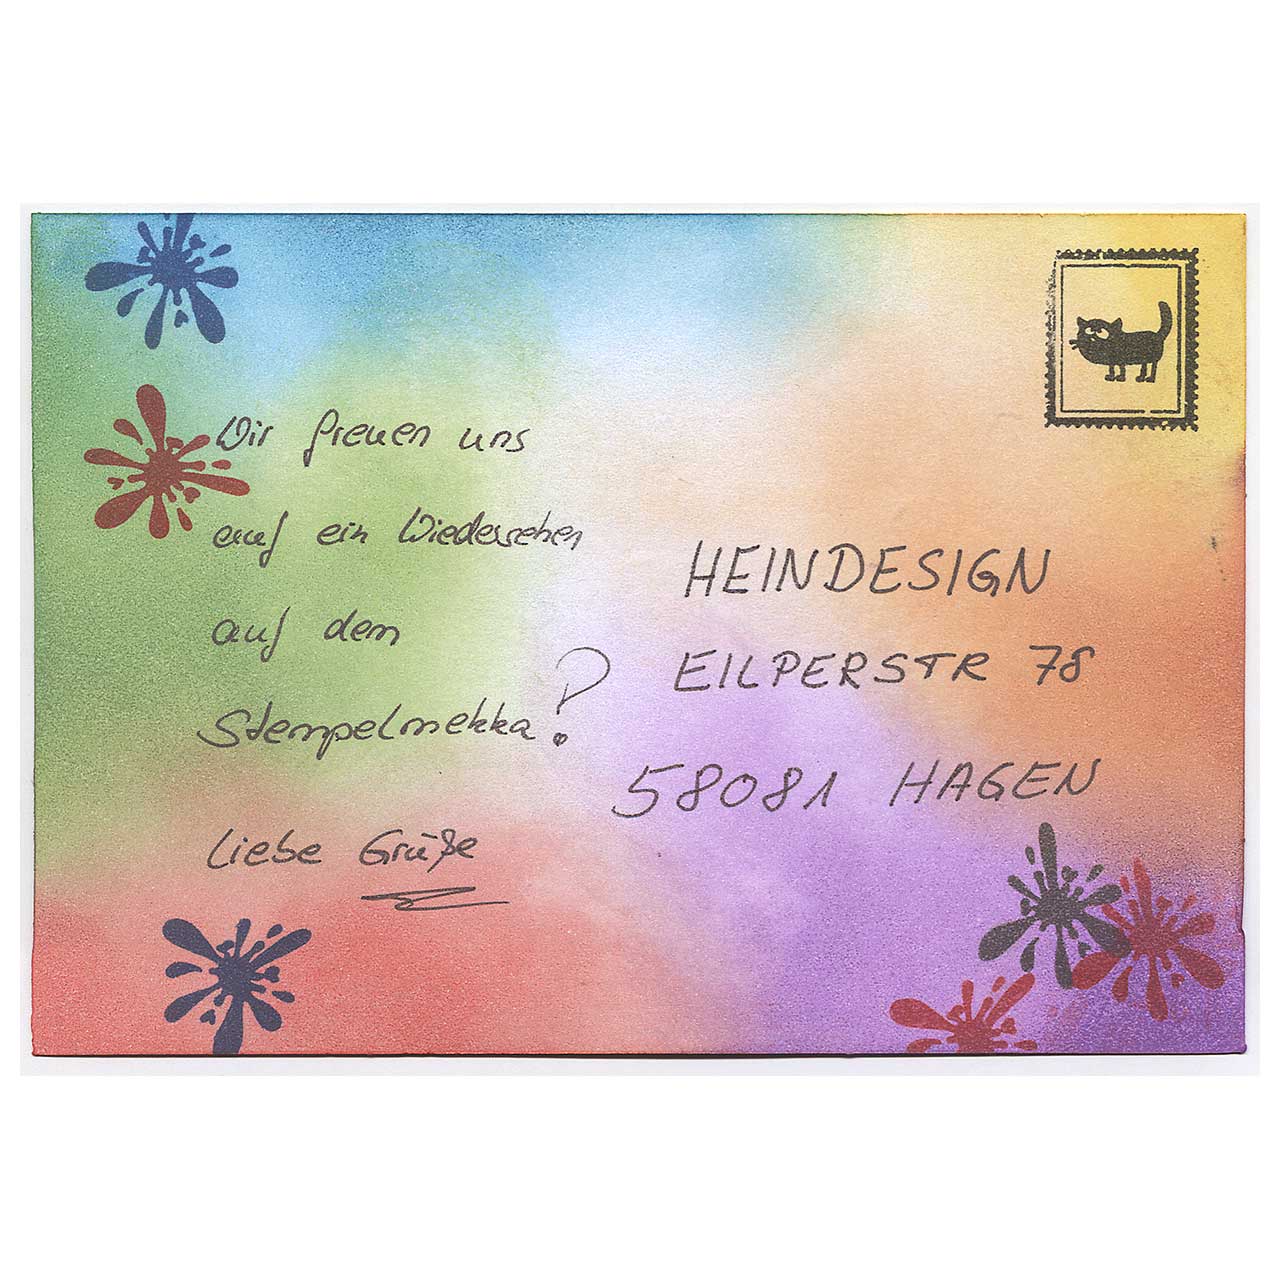 Wir freuen uns
auf ein Wiedersehen
auf dem
Stempelmekka?
Liebe Grüße
HEINDESIGN
EILPERSTR 78
58081 HAGEN